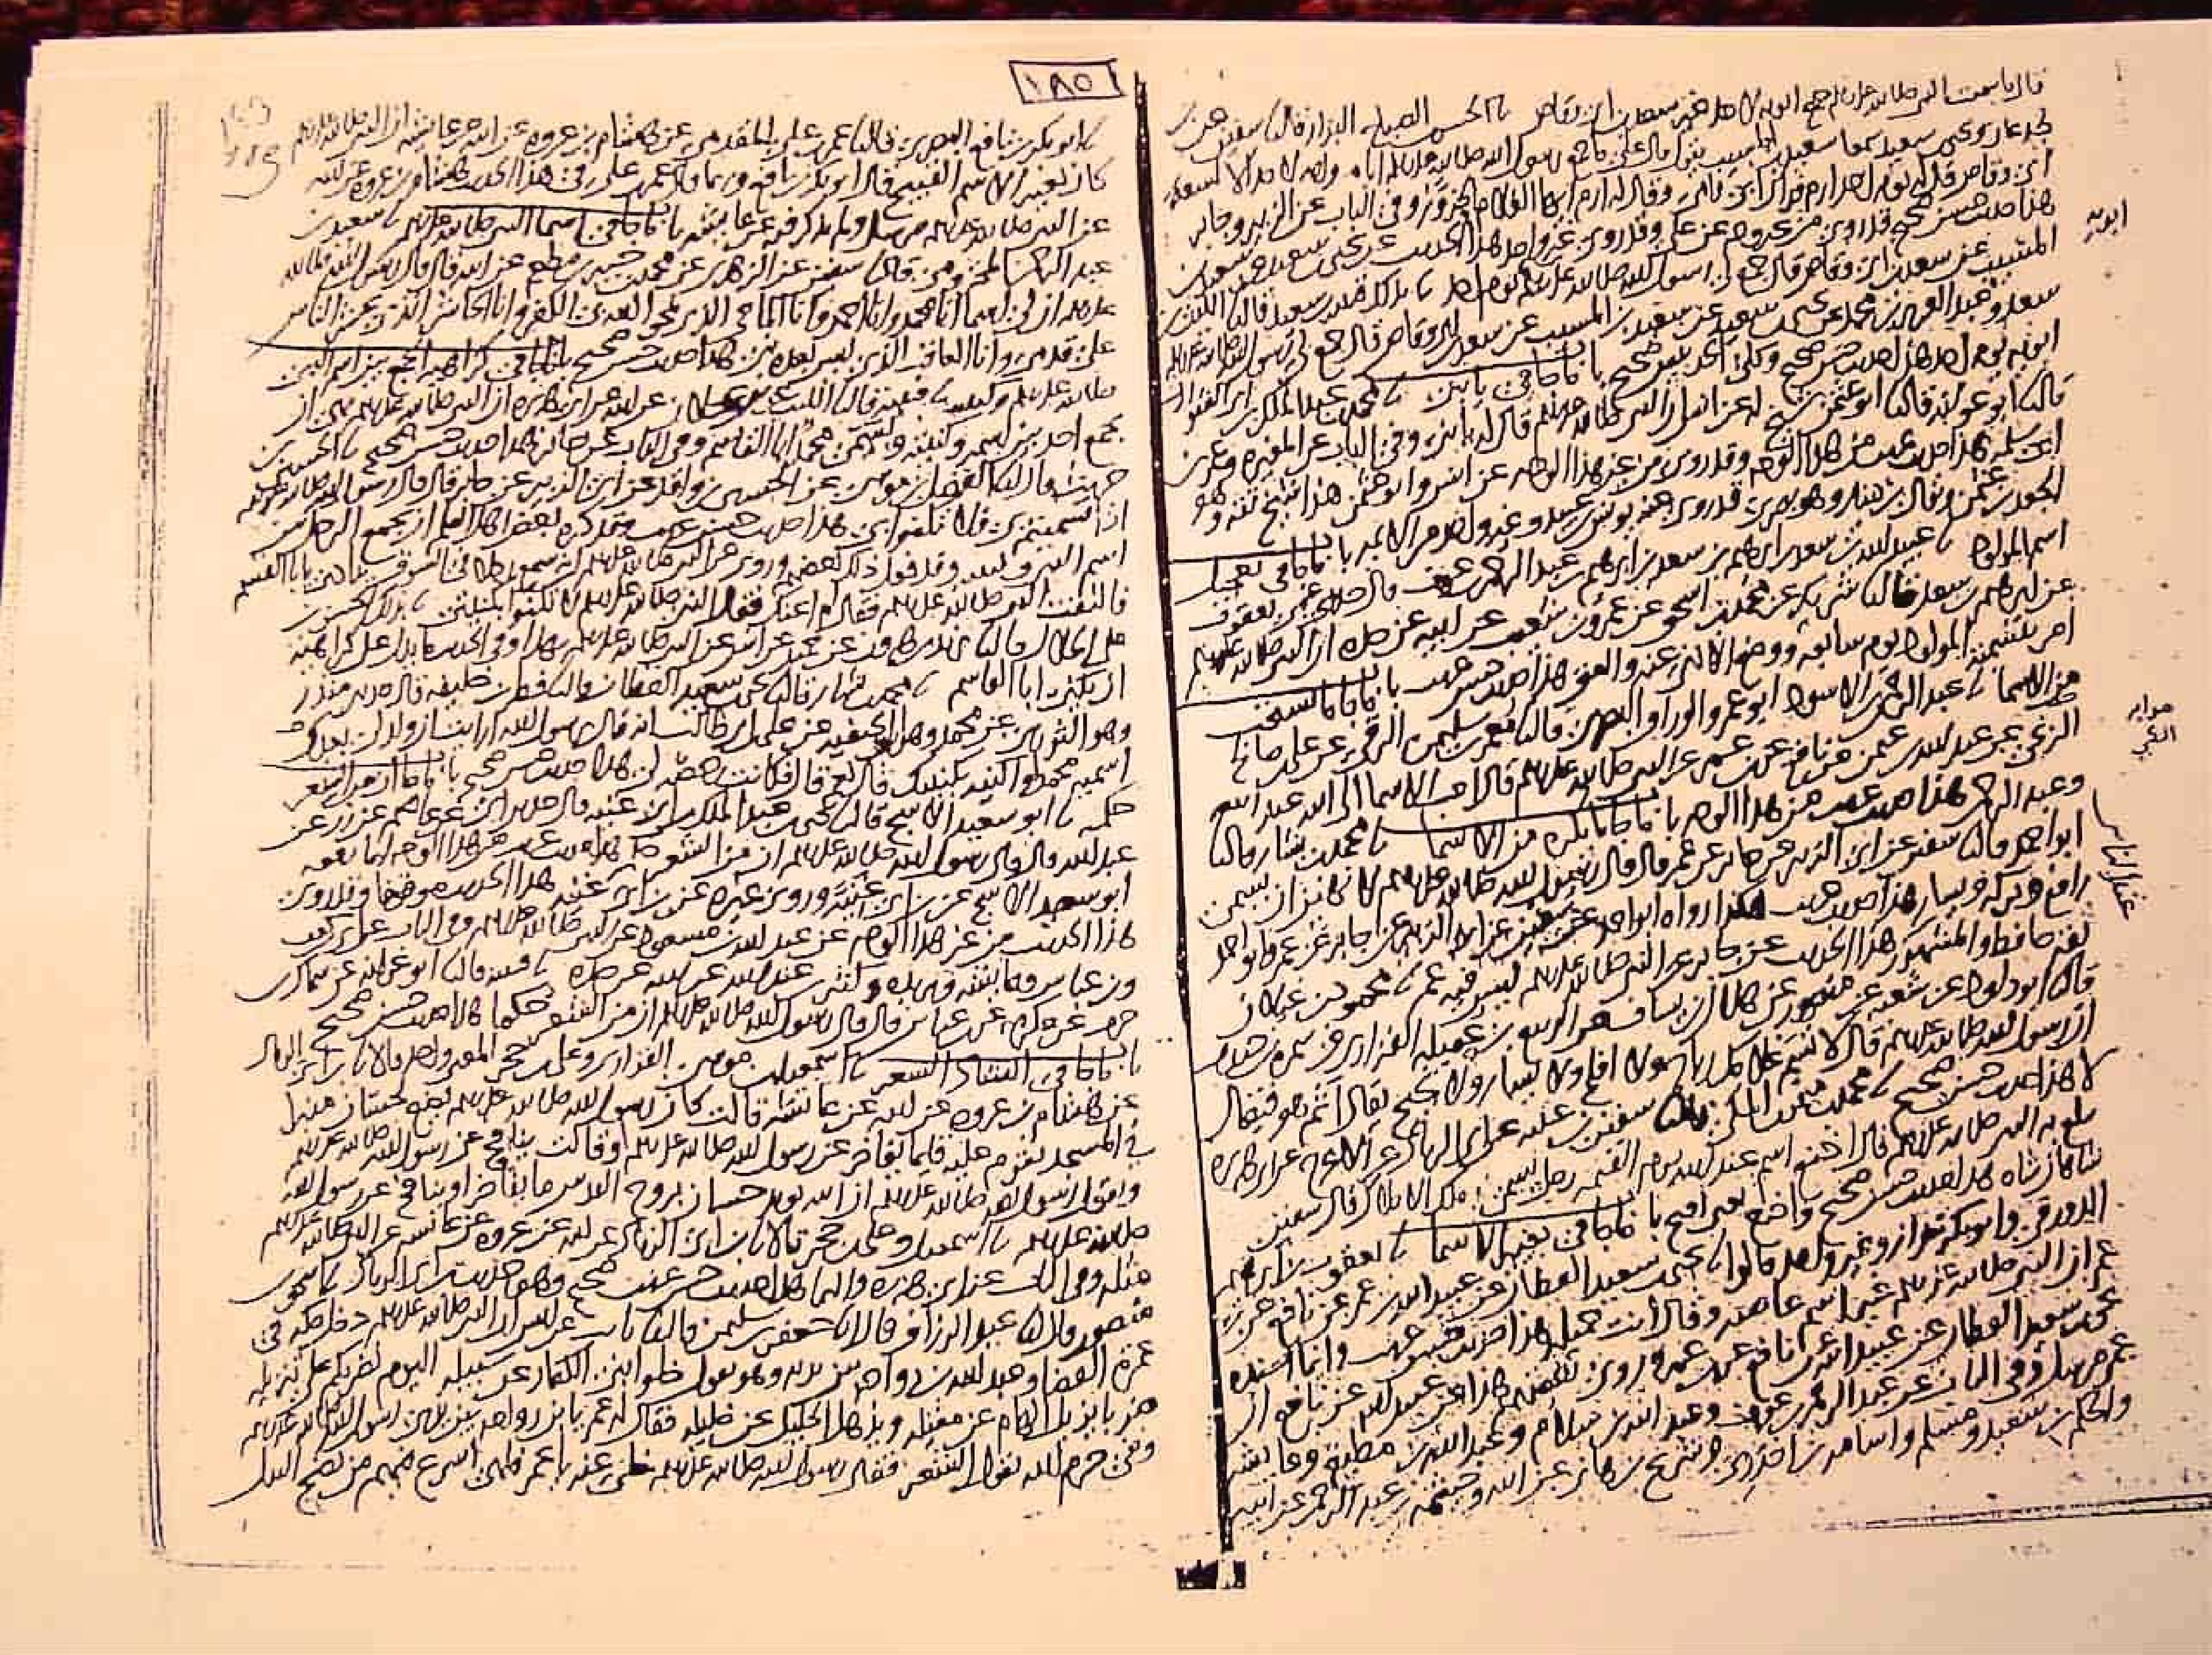 قال ما سمعت النبي صلى الله عليه وسلم جمع ابويه لاحد غير سعد بن ابي وقاص الحسن الصباح البزار قال سفين عن بن
جدعان ويحيى بن سعيد سمعا سعيد بن المسيب يقول قال علي ما جمع رسول الله صلى الله عليه وسلم اباه وامه لاحد الا لسعد
ابن وقاص قال له يوم احد ارم فداك ابي وامي وقال له ارم ايها الغلام الحزور وفي الباب عن الزبير وجابر
هذا حديث حسن صحيح قد روي من غير وجه عن علي وقد روى غير واحد هذا الحديث عن يحيى بن سعيد عن سعيد بن
المسيب عن سعد بن ابي وقاص قال جمع لي رسول الله صلى الله عليه وسلم ابويه يوم احد بذلك قتيبة بن سعيد قال الليث بن
سعد وعبد العزيز بن محمد عن يحيى بن سعيد عن سعيد بن المسيب عن سعد بن ابي وقاص قال جمع لي رسول الله صلى الله عليه وسلم
ابويه يوم احد هذا حديث حسن صحيح وكلا الحديثين صحيح باب ما جا في يا بني محمد بن عبد الملك بن ابي الشوارب
قال ابو عوانة قال ابو عثمن شيخ له عن انس ان النبي صلى الله عليه وسلم قال له يا بني وفي الباب عن المغيرة وعمر بن
ابي سلمة هذا حديث غريب من هذا الوجه وقد روي من غير هذا الوجه عن انس وابو عثمن هذا شيخ ثقة وهو
الجعد بن عثمن ويقال بن دينار وهو بصري قد روى عنه يونس بن عبيد وغير واحد من الايمة باب ما جا في تعجيل
اسم المولود عبيد الله بن سعد بن ابرهيم بن سعد بن ابرهيم بن عبد الرحمن بن عوف قال حدثني عمي يعقوب
عن ابرهيم بن سعد قال شريك عن محمد بن اسحق عن عمرو بن شعيب عن ابيه عن جده ان النبي صلى الله عليه وسلم
امر بتسمية المولود يوم سابعه ووضع الاذى عنه والعق هذا حديث حسن غريب باب ما جا ما يستحب
من الاسما عبد الرحمن بن الاسود ابو عمرو الوراق البصري قال معمر بن سليمن الرقي عن علي بن صالح
الزنجي عن عبد الله بن عثمن عن نافع عن بن عمر عن النبي صلى الله عليه وسلم قال احب الاسما الى الله عبد الله
وعبد الرحمن هذا حديث غريب من هذا الوجه باب ما جا ما يكره من الاسما محمد بن بشار قال
ابو احمد قال سفين عن ابي الزبير عن جابر عن عمر قال قال رسول الله صلى الله عليه وسلم لانهين ان يسمى
رافع وبركة ويسار هذا حديث غريب هكذا رواه ابو احمد عن سفين عن ابي الزبير عن جابر عن عمر وابو احمد
ثقة حافظ والمشهور هذا الحديث عن جابر عن النبي صلى الله عليه وسلم ليس فيه عمر محمود بن غيلان
قال ابو داود عن شعبة عن منصور عن هلال بن يساف عن الربيع بن عميلة الفزاري عن سمرة بن جندب
ان رسول الله صلى الله عليه وسلم قال لا تسم غلامك رباح ولا افلح ولا يسار ولا نجيح يقال اثم هو فيقال
لا هذا حديث حسن صحيح محمد بن ميمون المكي قال سفين بن عيينة عن ابي الزناد عن الاعرج عن ابي هريرة
يبلغ به النبي صلى الله عليه وسلم قال اخنع اسم عند الله يوم القيمة رجل تسمى ملك الاملاك قال سفين
شاهان شاه هذا حديث حسن صحيح واخنع يعني اقبح باب ما جا في تغيير الاسما يعقوب بن ابرهيم
الدورقي وابو بكر بندار وغير واحد قالوا يحيى بن سعيد القطان عن عبيد الله بن عمر عن نافع عن بن
عمر ان النبي صلى الله عليه وسلم غير اسم عاصية وقال انت جميلة هذا حديث حسن غريب وانما اسنده
يحيى بن سعيد القطان عن عبيد الله عن نافع عن بن عمر وروى بعضهم هذا عن عبيد الله عن نافع ان
عمر مرسل وفي الباب عن عبد الرحمن بن عوف وعبد الله بن سلام وعبد الله بن مطيع وعايشة
والحكم بن سعيد ومسلم واسامة بن اخدري وشريح بن هانئ عن ابيه وخيثمة بن عبد الرحمن عن ابيه
١٨٥
ابو بكر بن نافع البصري قال عمر بن علي المقدمي عن هشام بن عروة عن ابيه عن عايشة ان النبي صلى الله عليه وسلم
كان يغير الاسم القبيح قال ابو بكر بن نافع وربما قال عمر بن علي في هذا الحديث هشام بن عروة عن ابيه
عن النبي صلى الله عليه وسلم مرسل ولم يذكر فيه عن عايشة باب ما جا في اسما النبي صلى الله عليه وسلم سعيد بن
عبد الرحمن المخزومي قال سفين عن الزهري عن محمد بن جبير بن مطعم عن ابيه قال قال رسول الله صلى الله
عليه وسلم ان لي اسما انا محمد وانا احمد وانا الماحي الذي يمحو الله بي الكفر وانا الحاشر الذي يحشر الناس
على قدمي وانا العاقب الذي ليس بعده نبي هذا حديث حسن صحيح باب ما جا في كراهية الجمع بين اسم النبي
صلى الله عليه وسلم وكنيته قتيبة قال الليث عن بن عجلان عن ابيه عن ابي هريرة ان النبي صلى الله عليه وسلم نهى ان
يجمع احد بين اسمه وكنيته ويسمى محمدا ابا القاسم وفي الباب عن جابر هذا حديث حسن صحيح الحسين بن
حريث قال الفضل بن موسى عن الحسين بن واقد عن ابي الزبير عن جابر قال قال رسول الله صلى الله عليه وسلم
اذا تسميتم بي فلا تكتنوا بي هذا حديث حسن غريب وقد كره بعض اهل العلم ان يجمع الرجل بين
اسم النبي وكنيته وقد فعل ذلك بعضهم وروي عن النبي صلى الله عليه وسلم انه سمع رجلا في السوق ينادي يا ابا القسم
فالتفت النبي صلى الله عليه وسلم فقال لم اعنك فقال النبي صلى الله عليه وسلم لا تكتنوا بكنيتي بذلك الحسن بن
علي الخلال قال يزيد بن هرون عن حميد عن انس عن النبي صلى الله عليه وسلم بهذا وفي الحديث ما يدل على كراهية
ان يكنى ابا القاسم محمد بن بشار قال يحيى بن سعيد القطان قال فطر بن خليفة قال حدثني منذر
وهو الثوري عن محمد وهو ابن الحنفية عن علي بن ابي طالب انه قال يرسول الله ارايت ان ولد لي بعدك
اسميه محمدا واكنيه بكنيتك قال نعم قال فكانت رخصة لي هذا حديث حسن صحيح باب ما جا ان من الشعر
حكمة ابو سعيد الاشج قال يحيى بن عبد الملك بن ابي غنية قال حدثني ابي عن عاصم عن زر عن
عبد الله قال قال رسول الله صلى الله عليه وسلم ان من الشعر حكمة هذا حديث غريب من هذا الوجه انما رفعه
ابو سعيد الاشج عن بن ابي غنية وروى غيره عن بن ابي غنية هذا الحديث موقوفا وقد روي
هذا الحديث من غير هذا الوجه عن عبد الله بن مسعود عن النبي صلى الله عليه وسلم وفي الباب عن ابي بن كعب
وبن عباس وعايشة وبريدة وكثير بن عبد الله عن ابيه عن جده قتيبة قال ابو عوانة عن سماك بن
حرب عن عكرمة عن بن عباس قال قال رسول الله صلى الله عليه وسلم ان من الشعر حكما هذا حديث حسن صحيح
باب ما جا في انشاد الشعر اسمعيل بن موسى الفزاري وعلي بن حجر المعنى واحد قالا بن ابي الزناد
عن هشام بن عروة عن ابيه عن عايشة قالت كان رسول الله صلى الله عليه وسلم يضع لحسان منبرا
في المسجد يقوم عليه قايما يفاخر عن رسول الله صلى الله عليه وسلم او قالت ينافح عن رسول الله صلى الله عليه وسلم
ويقول رسول الله صلى الله عليه وسلم ان الله يويد حسان بروح القدس ما يفاخر او ينافح عن رسول الله
صلى الله عليه وسلم اسمعيل وعلي بن حجر قالا بن ابي الزناد عن ابيه عن عروة عن عايشة عن النبي صلى الله عليه وسلم
مثله وفي الباب عن ابي هريرة والبرا هذا حديث حسن غريب صحيح وهو حديث بن ابي الزناد اسحق بن
منصور قال عبد الرزاق قال جعفر بن سليمن قال ثابت عن انس ان النبي صلى الله عليه وسلم دخل مكة في
عمرة القضا وعبد الله بن رواحة بين يديه وهو يقول خلوا بني الكفار عن سبيله اليوم نضربكم على تنزيله
ضربا يزيل الهام عن مقيله ويذهل الخليل عن خليله فقال له عمر يا بن رواحة بين يدي رسول الله صلى الله عليه وسلم
وفي حرم الله تقول الشعر فقال رسول الله صلى الله عليه وسلم خل عنه يا عمر فلهي اسرع فيهم من نضح النبل